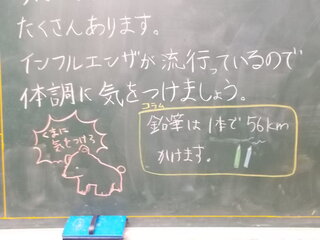 たくさんあります。
インフルエンザが流行っているので
体調に気をつけましょう。
コラム
鉛筆は1本で56km
かけます。
くまに
気をつけろ